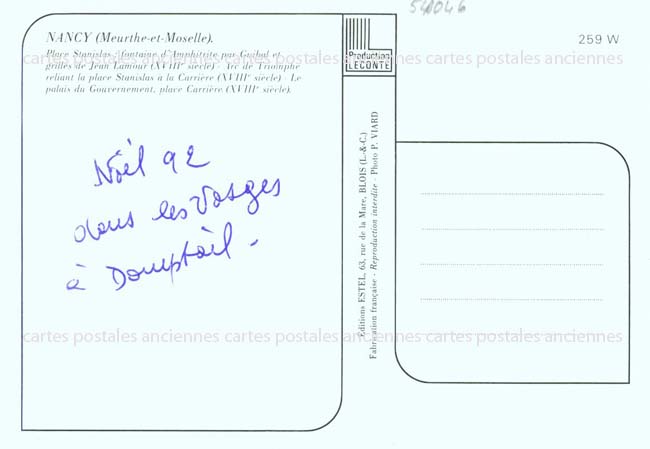 54046
NANCY (Meurthe-et-Moselle).
Place Stanislas : fontaine d'Amphitrite par Guibal et
grilles de Jean Lamour (XVIIIe siècle) - Arc de Triomphe
reliant la place Stanislas à la Carrière (XVIIIe siècle) - Le
palais du Gouvernement, place Carrière (XVIIIe siècle).
Production
LECONTE
259 W
cartes postales anciennes cartes postales anciennes cartes postales anciennes
Noël 92
dans les Vosges
à Domptail.
Editions ESTEL, 63, rue de la Mare, BLOIS (L.-&-C.)
Fabrication française - Reproduction interdite - Photo P. VIARD
cartes postales anciennes cartes postales anciennes cartes postales anciennes